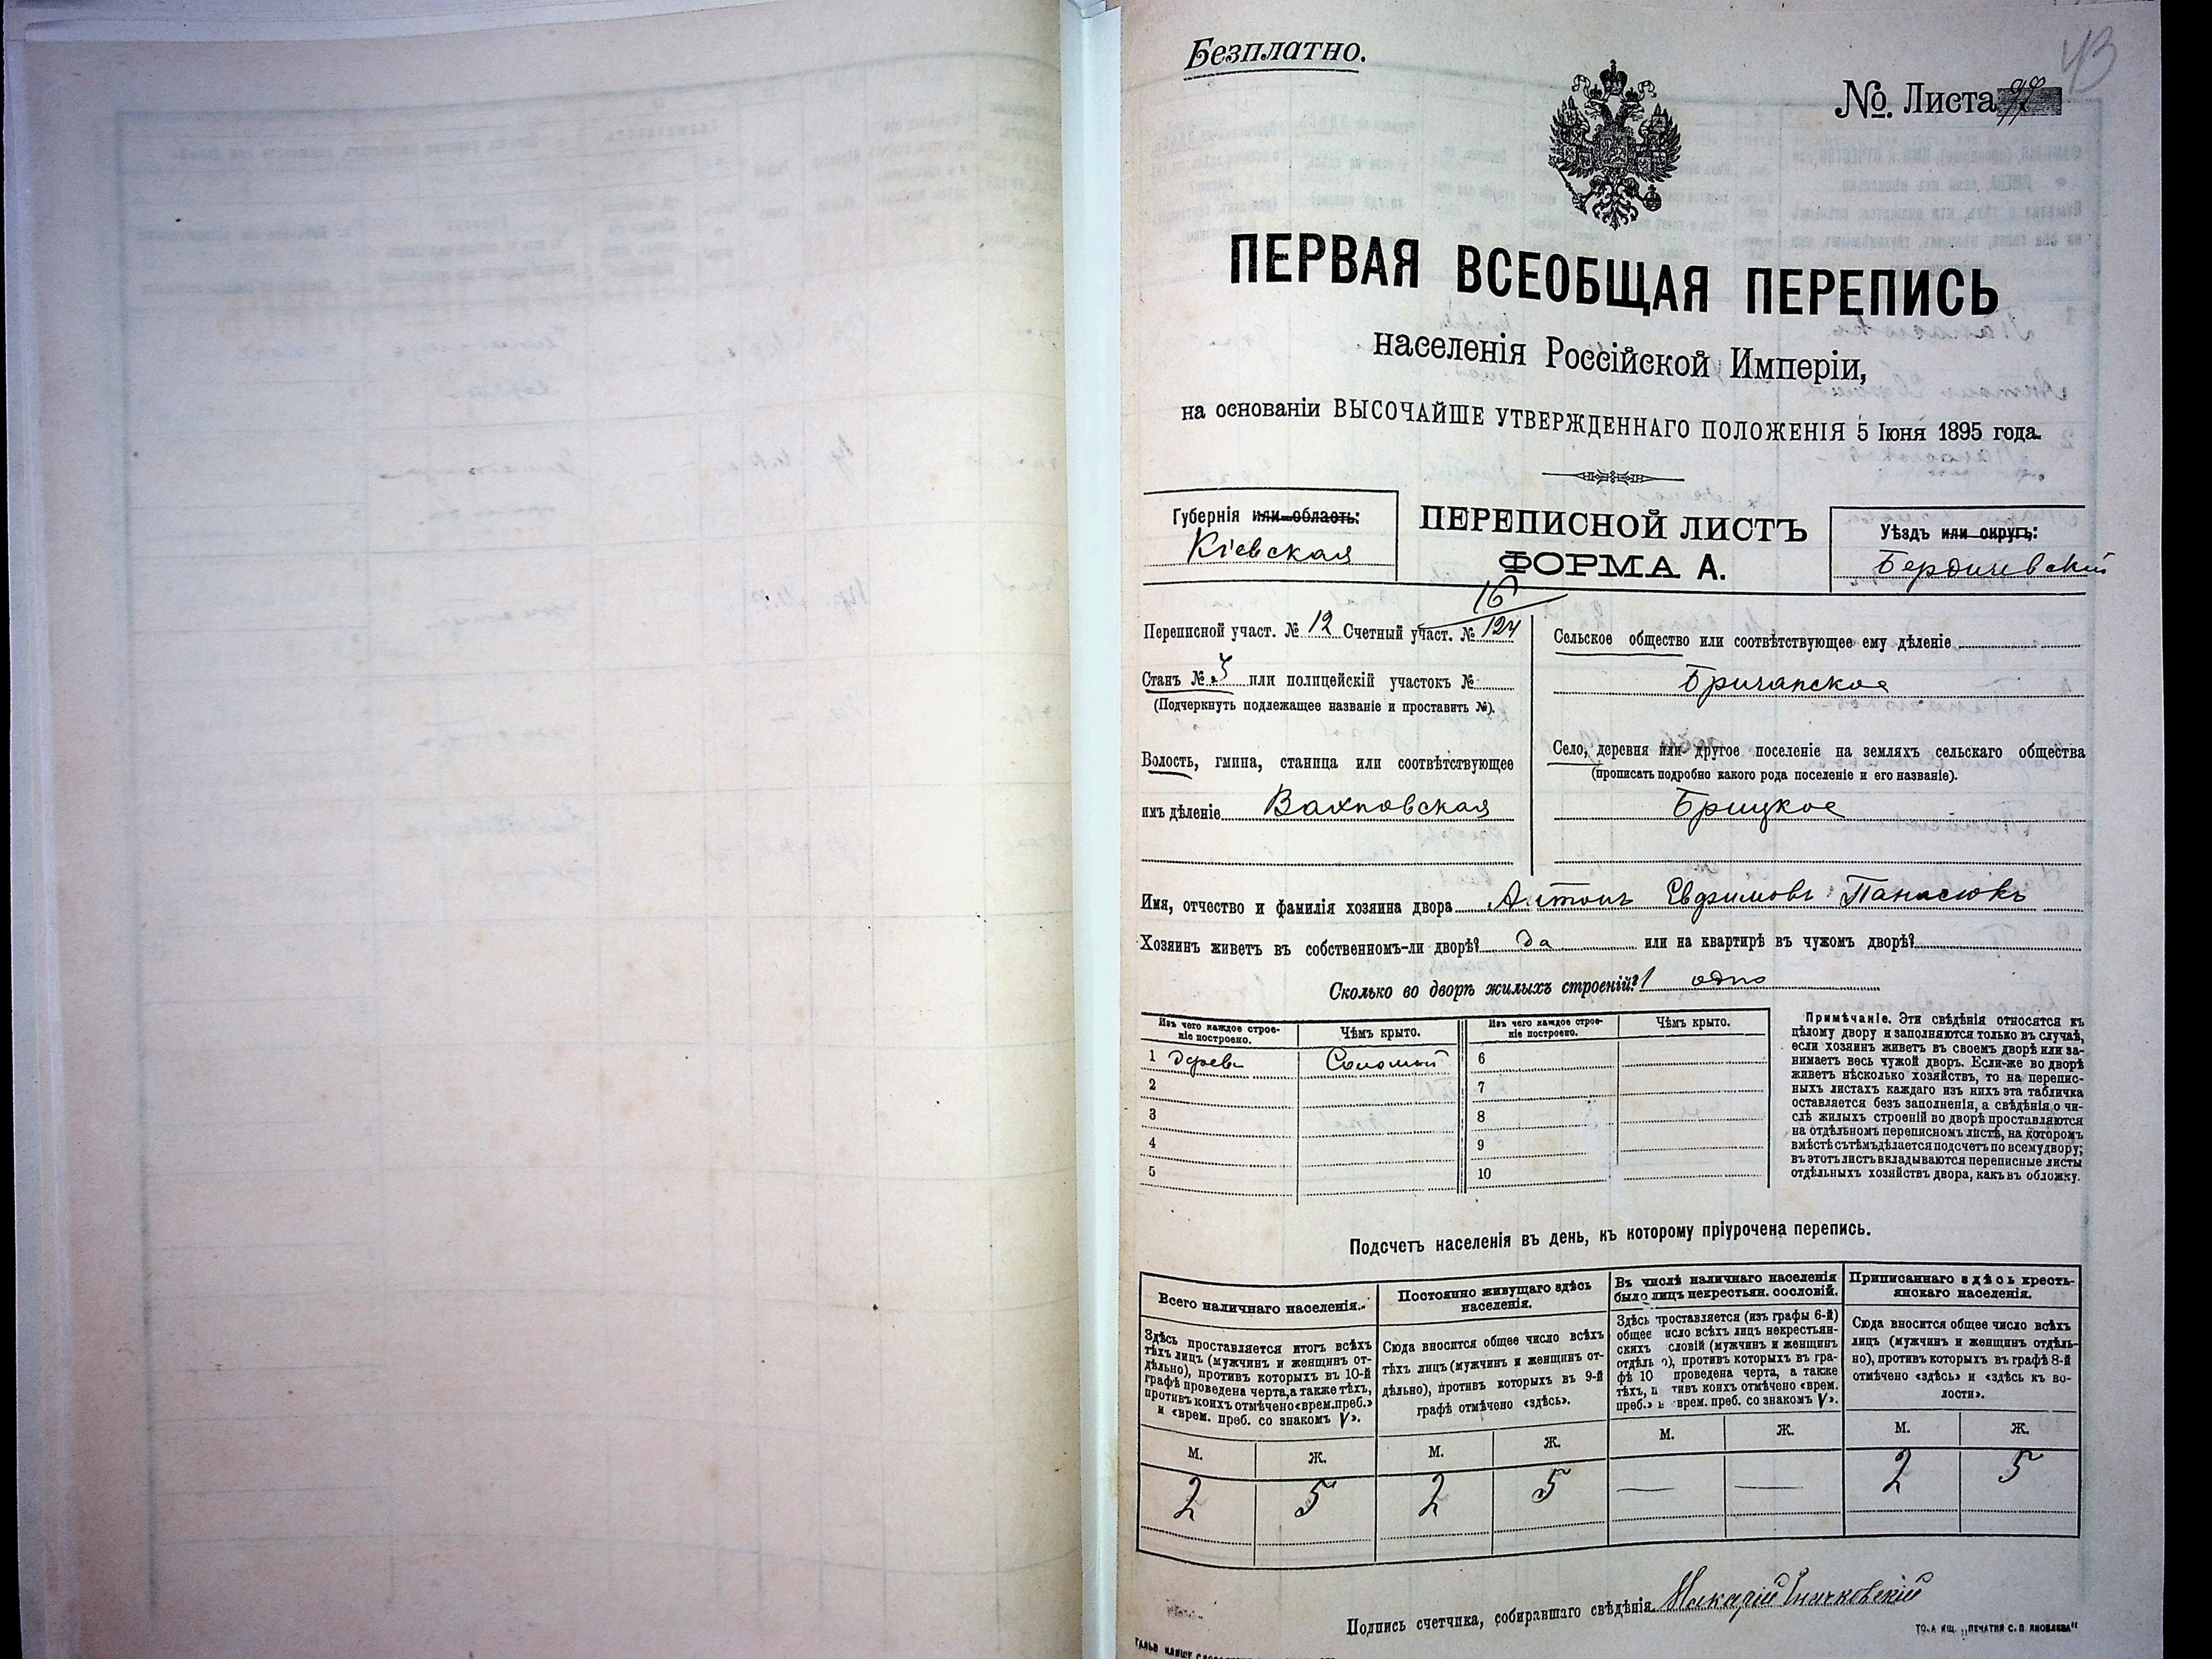 Безплатно.
43
№ Листа
ПЕРВАЯ ВСЕОБЩАЯ ПЕРЕПИСЬ
населенія Россійской Имперіи,
на основаніи ВЫСОЧАЙШЕ УТВЕРЖДЕННАГО ПОЛОЖЕНІЯ 5 Іюня 1895 года.
Губернія или область:
Кіевская
ПЕРЕПИСНОЙ ЛИСТЪ
ФОРМА А.
Уѣздъ или округъ:
Бердичевский
16
Переписной участ. № 12 Счетный участ. № 124
Станъ № 3 или полицейскій участокъ №
(Подчеркнуть подлежащее названіе и проставить №).
Волость, гмина, станица или соотвѣтствующее
имъ дѣленіе Вахновская
Сельское общество или соотвѣтствующее ему дѣленіе
Село, деревня или другое поселеніе на земляхъ сельскаго общества
(прописать подробно какого рода поселеніе и его названіе).
Брицкое
Имя, отчество и фамилія хозяина двора Антонъ Евфимовъ Панасюкъ
Хозяинъ живетъ въ собственномъ-ли дворѣ? да или на квартирѣ въ чужомъ дворѣ?
Сколько во дворѣ жилыхъ строеній? 1 одно
Изъ чего каждое строеніе построено.
Чѣмъ крыто.
Изъ чего каждое строеніе построено.
Чѣмъ крыто.
1 дерев Соломой 6
2 7
3 8
4 9
5 10
Примѣчаніе. Эти свѣдѣнія относятся къ
цѣлому двору и заполняются только въ случаѣ,
если хозяинъ живетъ въ своемъ дворѣ или за-
нимаетъ весь чужой дворъ. Если-же во дворѣ
живетъ нѣсколько хозяйствъ, то на перепис-
ныхъ листахъ каждаго изъ нихъ эта табличка
оставляется безъ заполненія, а свѣдѣнія о чи-
слѣ жилыхъ строеній во дворѣ проставляются
на отдѣльномъ переписномъ листѣ, на которомъ
вмѣстѣ съ тѣмъ дѣлается подсчетъ по всему двору;
въ этотъ листъ вкладываются переписные листы
отдѣльныхъ хозяйствъ двора, какъ въ обложку.
Подсчетъ населенія въ день, къ которому пріурочена перепись.
Всего наличнаго населенія.
Здѣсь проставляется итогъ всѣхъ
тѣхъ лицъ (мужчинъ и женщинъ от-
дѣльно), противъ которыхъ въ 10-й
графѣ проведена черта, а также тѣхъ,
противъ коихъ отмѣчено «врем. преб.»
и «врем. преб. со знакомъ V».
Постоянно живущаго здѣсь
населенія.
Сюда вносится общее число всѣхъ
тѣхъ лицъ (мужчинъ и женщинъ от-
дѣльно), противъ которыхъ въ 9-й
графѣ отмѣчено «здѣсь».
Въ числѣ наличнаго населенія
было лицъ некрестьян. сословій.
Здѣсь проставляется (изъ графы 6-й)
общее исло всѣхъ лицъ некрестьян-
скихъ словій (мужчинъ и женщинъ
отдѣль о), противъ которыхъ въ гра-
фѣ 10 проведена черта, а также
тѣхъ, п тивъ коихъ отмѣчено «врем.
преб.» и врем. преб. со знакомъ V».
Приписаннаго здѣсь кресть-
янскаго населенія.
Сюда вносится общее число всѣхъ
лицъ (мужчинъ и женщинъ отдѣль-
но), противъ которыхъ въ графѣ 8-й
отмѣчено «здѣсь» и «здѣсь къ во-
лости».
М. Ж. М. Ж. М. Ж. М. Ж.
2 5 2 5 — — 2 5
Подпись счетчика, собиравшаго свѣдѣнія Макарій
ТО-А ИЩ. „ПЕЧАТНЯ С. П. ЯКОВЛЕВА"